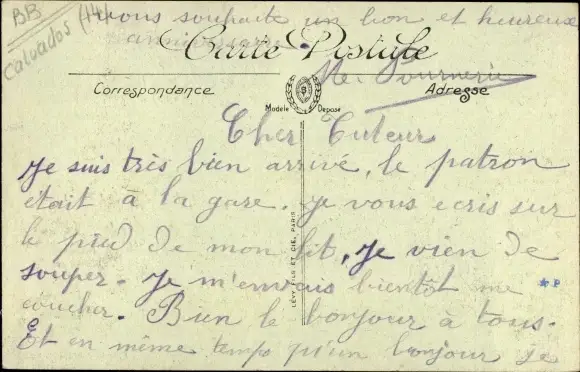 BB
Calvados (14)
vous souhaite un bon et heureux
anniversaire.
Carte Postale
Me. Tournerie
Correspondance
Adresse
Modèle Déposé
Cher Tuteur
Je suis très bien arrivé, le patron
était à la gare. Je vous ecris sur
le pied de mon lit, Je vien de
souper. Je m'envais bientôt me
coucher. Bien le bonjour à tous.
Et en même temps qu'un bonjour je
LÉVY FILS ET CIE, PARIS
* P